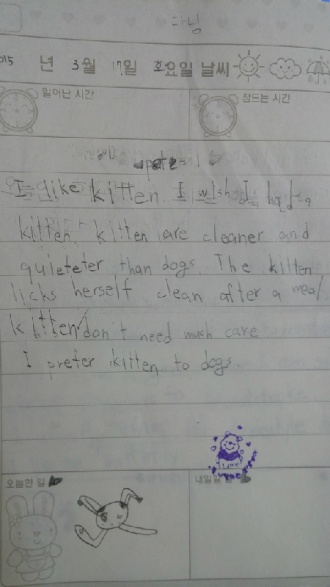 다닝
015 년 3월 17일 화요일 날씨
일어난 시간 잠드는 시간
I like kitten. I wish I had a
kitten kitten are cleaner and
quieteter than dogs. The kitten
licks herself clean after a meal
kitten don't need much care
I prefer kitten to dogs.
오늘한 일
내일할 일